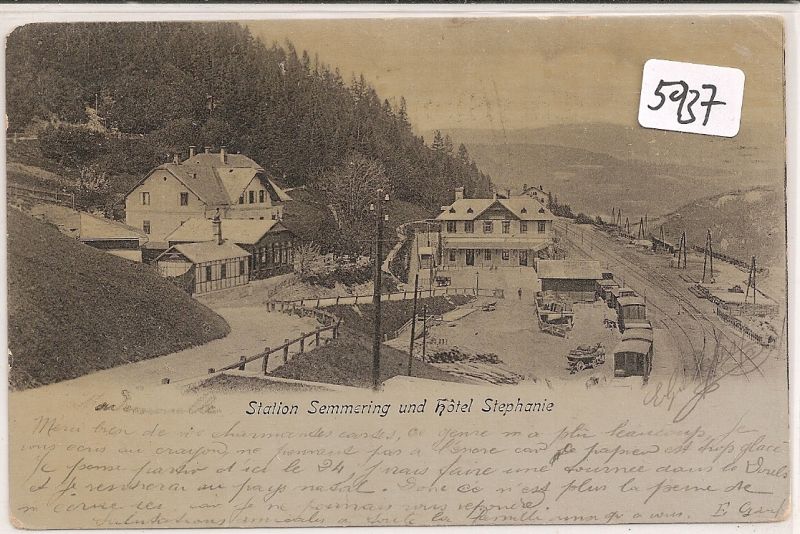 5937
Station Semmering und Hôtel Stephanie
Mademoiselle
Merci bien de vos charmantes cartes, ce genre m'a plu beaucoup, je
vous écris au crayon ne pouvant pas à l'encre car ce papier est trop glacé
Je pense partir d'ici le 24, j'irais faire une tournée dans le
et je rentrerai au pays natal. Donc ce n'est plus la peine de
m'écrire ici car je ne pourrais vous répondre.
Salutations amicales à toute la famille ainsi qu'à vous. E.